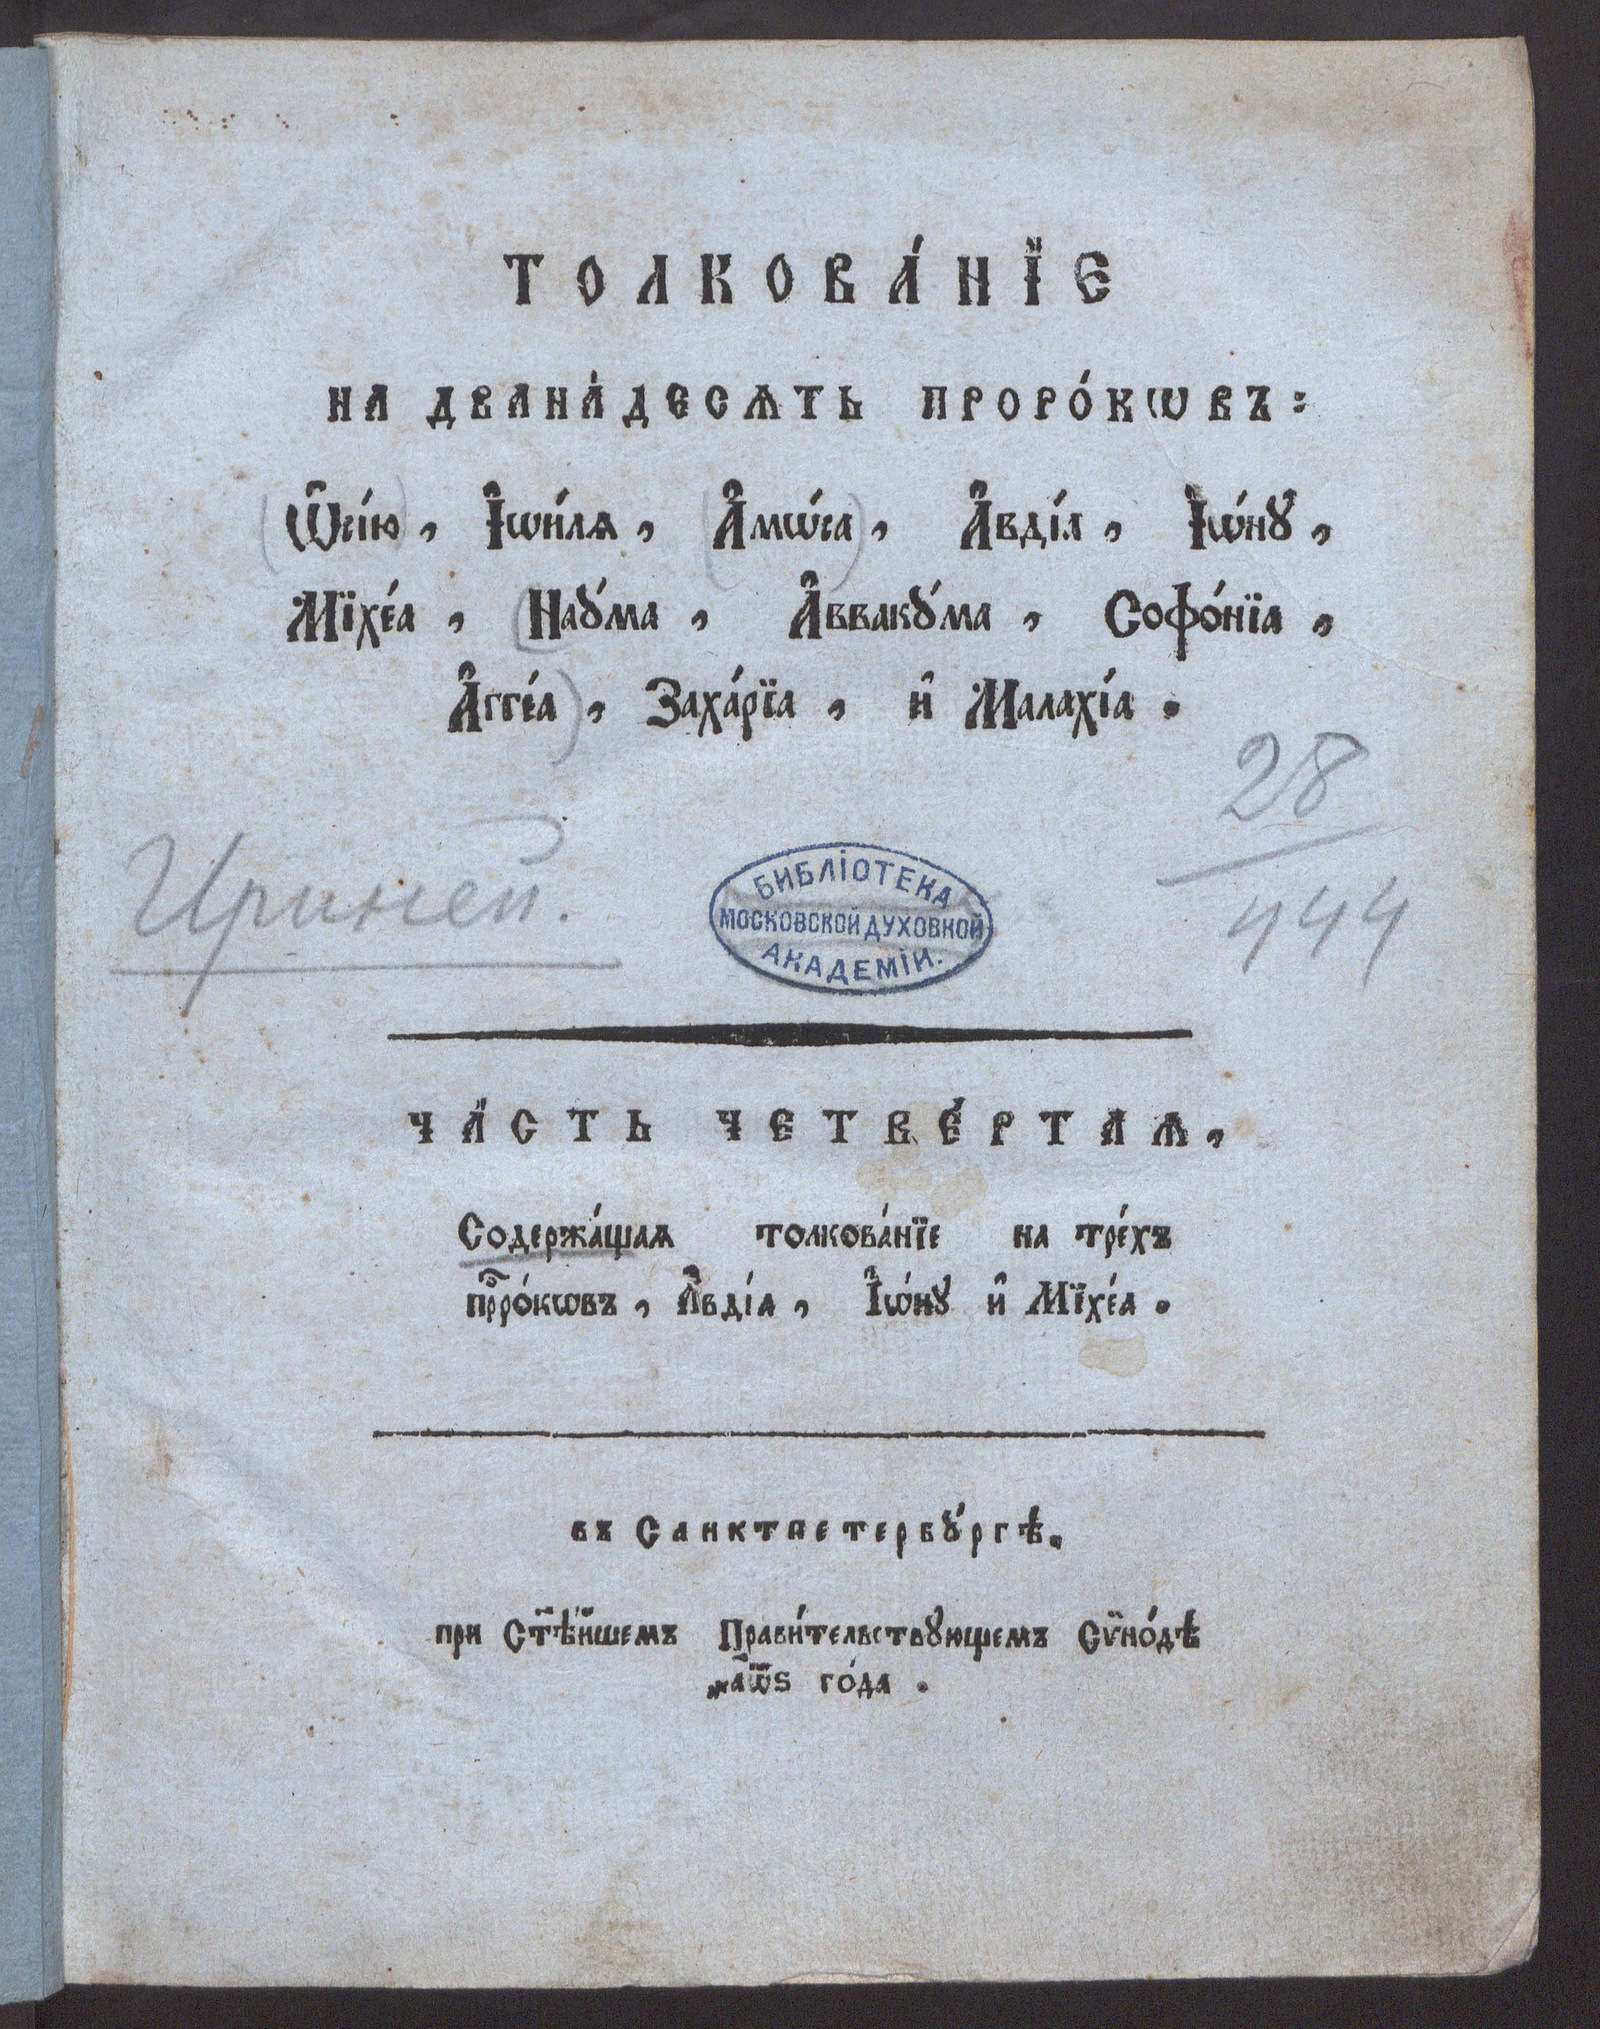 ТОЛКОВА́НЇЕ
НА ДВАНА́ДЕСѦТЬ ПРОРО́КѠВЪ:
Ѡ҆сі́ю, І҆ѡи́лѧ, А҆мѡ́са, А҆вді́а, І҆ѡ́нꙋ,
Мїхе́а, Наꙋ́ма, А҆ввакꙋ́ма, Софо́нїа,
А҆гге́а, Заха́рїа, и҆ Малахі́а.
28
444
Ириней.
БИБЛІОТЕКА
МОСКОВСКОЙ ДУХОВНОЙ
АКАДЕМІИ.
ЧА́СТЬ ЧЕТВЕ́РТАѦ,
Содержа́щаѧ толкова́нїе на тре́хъ
прⷪ҇ро́кѡвъ, А҆вді́а, І҆ѡ́нꙋ и҆ Мїхе́а.
въ Санктпетербꙋ́ргѣ.
при Ст҃ѣ́йшемъ Прави́тельствꙋющемъ Сѷно́дѣ
҂аѿѕ го́да.